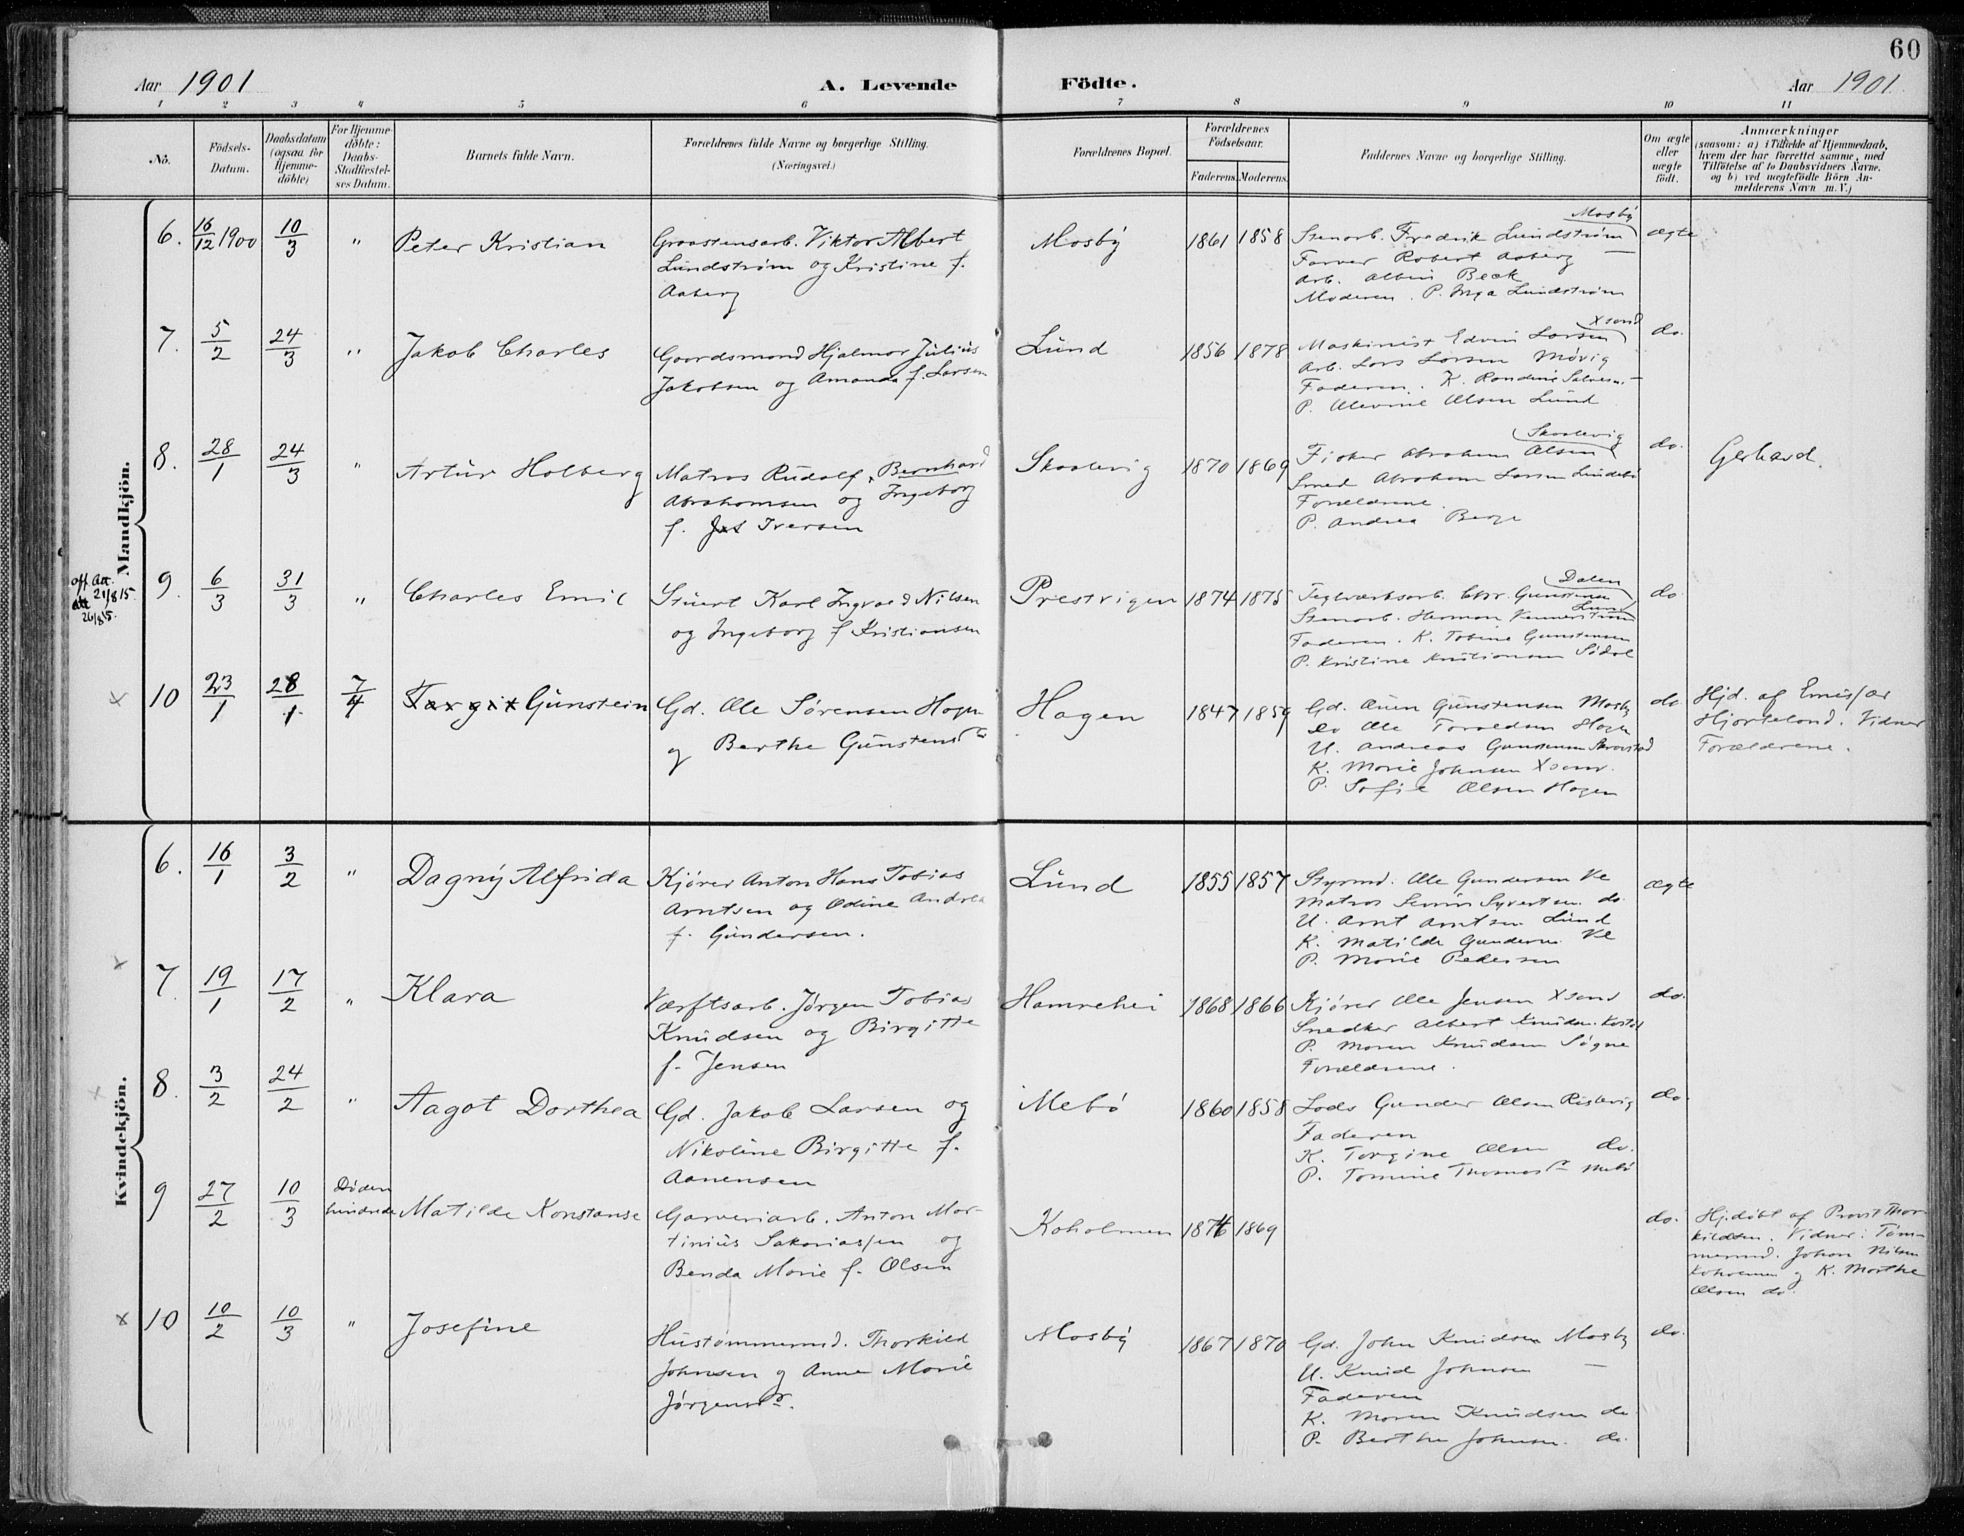 60
Aar 1901
A. Levende
Födte.
Aar 1901
1 2 3 4 5 6 7 8 9 10 11
No.
Födsels-Datum.
Daabsdatum (ogsaa for Hjemme-döbte)
For Hjemme-döbte: Daabs-Stadfæstel-ses Datum.
Barnets fulde Navn.
Forældrenes fulde Navne og borgerlige Stilling.
(Næringsvei.)
Forældrenes Bopæl.
Forældrenes Födselsaar.
Faderens. Moderens.
Faddernes Navne og borgerlige Stilling.
Om ægte eller uægte födt.
Anmærkninger
(saasom: a) i Tilfælde af Hjemmedaab,
hvem der har forrettet samme, med
Tilföielse af to Daabsvidners Navne.
og b) ved uægtefödte Börn An-
melderens Navn m. V.)
Mandkjön.
6. 16/12 1900 10/3 " Peter Kristian
Graastensarb. Viktor Albert
Lundstrøm og Kristine f.
Aaberg
Mosby 1861 1858
Mosby
Stenarb. Fredrik Lundstrøm
Farver Robert Aaberg —
Arb. Albin Beck
Moderen. P. Inga Lundstrøm
ægte
7. 5/2 24/3 " Jakob Charles
Gaardsmand Hjalmar Julius
Jakobsen og Amanda f. Larsen
Lund 1856 1878
Xsand
Maskinist Edvin Larsen
Arb. Lars Larsen Møvig
Faderen. K. Randine Salves. —
P. Alevine Olsen Lund
do.
8. 28/1 24/3 " Artur Holberg
Matros Rudolf Bernhard
Abrahamsen og Ingeborg
f. Iversen
Skaalevig 1870 1869
Skaalevig
Fisker Abraham Olsen
Smed Abraham Larsen Lindebø
Forældrene.
P. Andrea Berge
do.
Gerhard.
off. Att.
21/8 15.
att
26/8 15.
9. 6/3 31/3 " Charles Emil
Stuert Karl Ingvald Nilsen
og Ingeborg f. Kristiansen
Prestvigen 1874 1875
Dalen
Teglværksarb. Chr. Gunstensen
Lund
Stenarb. Herman Vennerstrøm
Faderen. K. Tobine Gunstensen
P. Kristine Kristiansen Sødal
do
x 10 23/1 28/1 7/4 Targit Gunstein
Gd. Ole Sørensen Hagen
og Berthe Gunstensdr
Hagen 1847 1859
Gd. Auen Gunstensen Mosby
Do Ole Taraldsen Hagen
U. Andreas Gunstensen
K. Marie Johnsen Xsand.
P. Sofie Olsen Hagen
do.
Hjd. af Emissær
Hjorteland. Vidner
Forældrene.
Kvindekjön.
6. 16/1 3/2 " Dagny Alfrida
Kjører Anton Hans Tobias
Arntsen og Odine Andrea
f. Gundersen.
Lund 1855 1857
Styrmd. Ole Gundersen Ve
Matros Syvertsen do.
U. Arnt Arntsen Lund
K. Matilde Gundersen Ve
P. Marie Pedersen
ægte
x
7. 19/1 17/2 " Klara
Værftsarb. Jørgen Tobias
Knudsen og Birgitte
f. Jensen
Hamrehei 1868 1866
Kjører Ole Jensen Xsand
Snedker Albert Knudsen
P. Maren Knudsen Søgne
Forældrene.
do.
x
8. 3/2 24/2 " Aagot Dorthea
Gd. Jakob Larsen og
Nikoline Birgitte f.
Aanensen
Mebø 1860 1858
Lods Gunder Olsen
Faderen
K. Torgine Olsen do.
P. Tomine Thomasdr Mebø
do.
9 27/2 10/3 Døden hindrede Matilde Konstanse
Garveriarb. Anton Mar-
tinius Sakariassen og
Benda Marie f. Olsen
Koholmen 1874 1869
do.
Hj.døbt af Provst Thor-
kildsen. Vidner: Tøm-
mermd. Johan Nilsen
Koholmen og K. Marthe
Olsen do.
x 10 10/2 10/3 " Josefine
Hustømmermd. Thorkild
Johnsen og Anne Marie
Jørgensdr.
Mosby 1867 1870
Gd. John Knudsen Mosby
U. Knud Johnsen —
Faderen
K. Maren Knudsen do
P. Berthe Johnsen. do.
do.